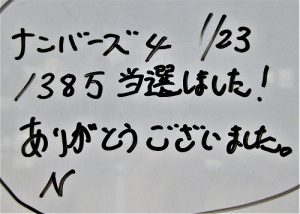 ナンバーズ4 1/23
138万当選しました!
ありがとうございました。
N